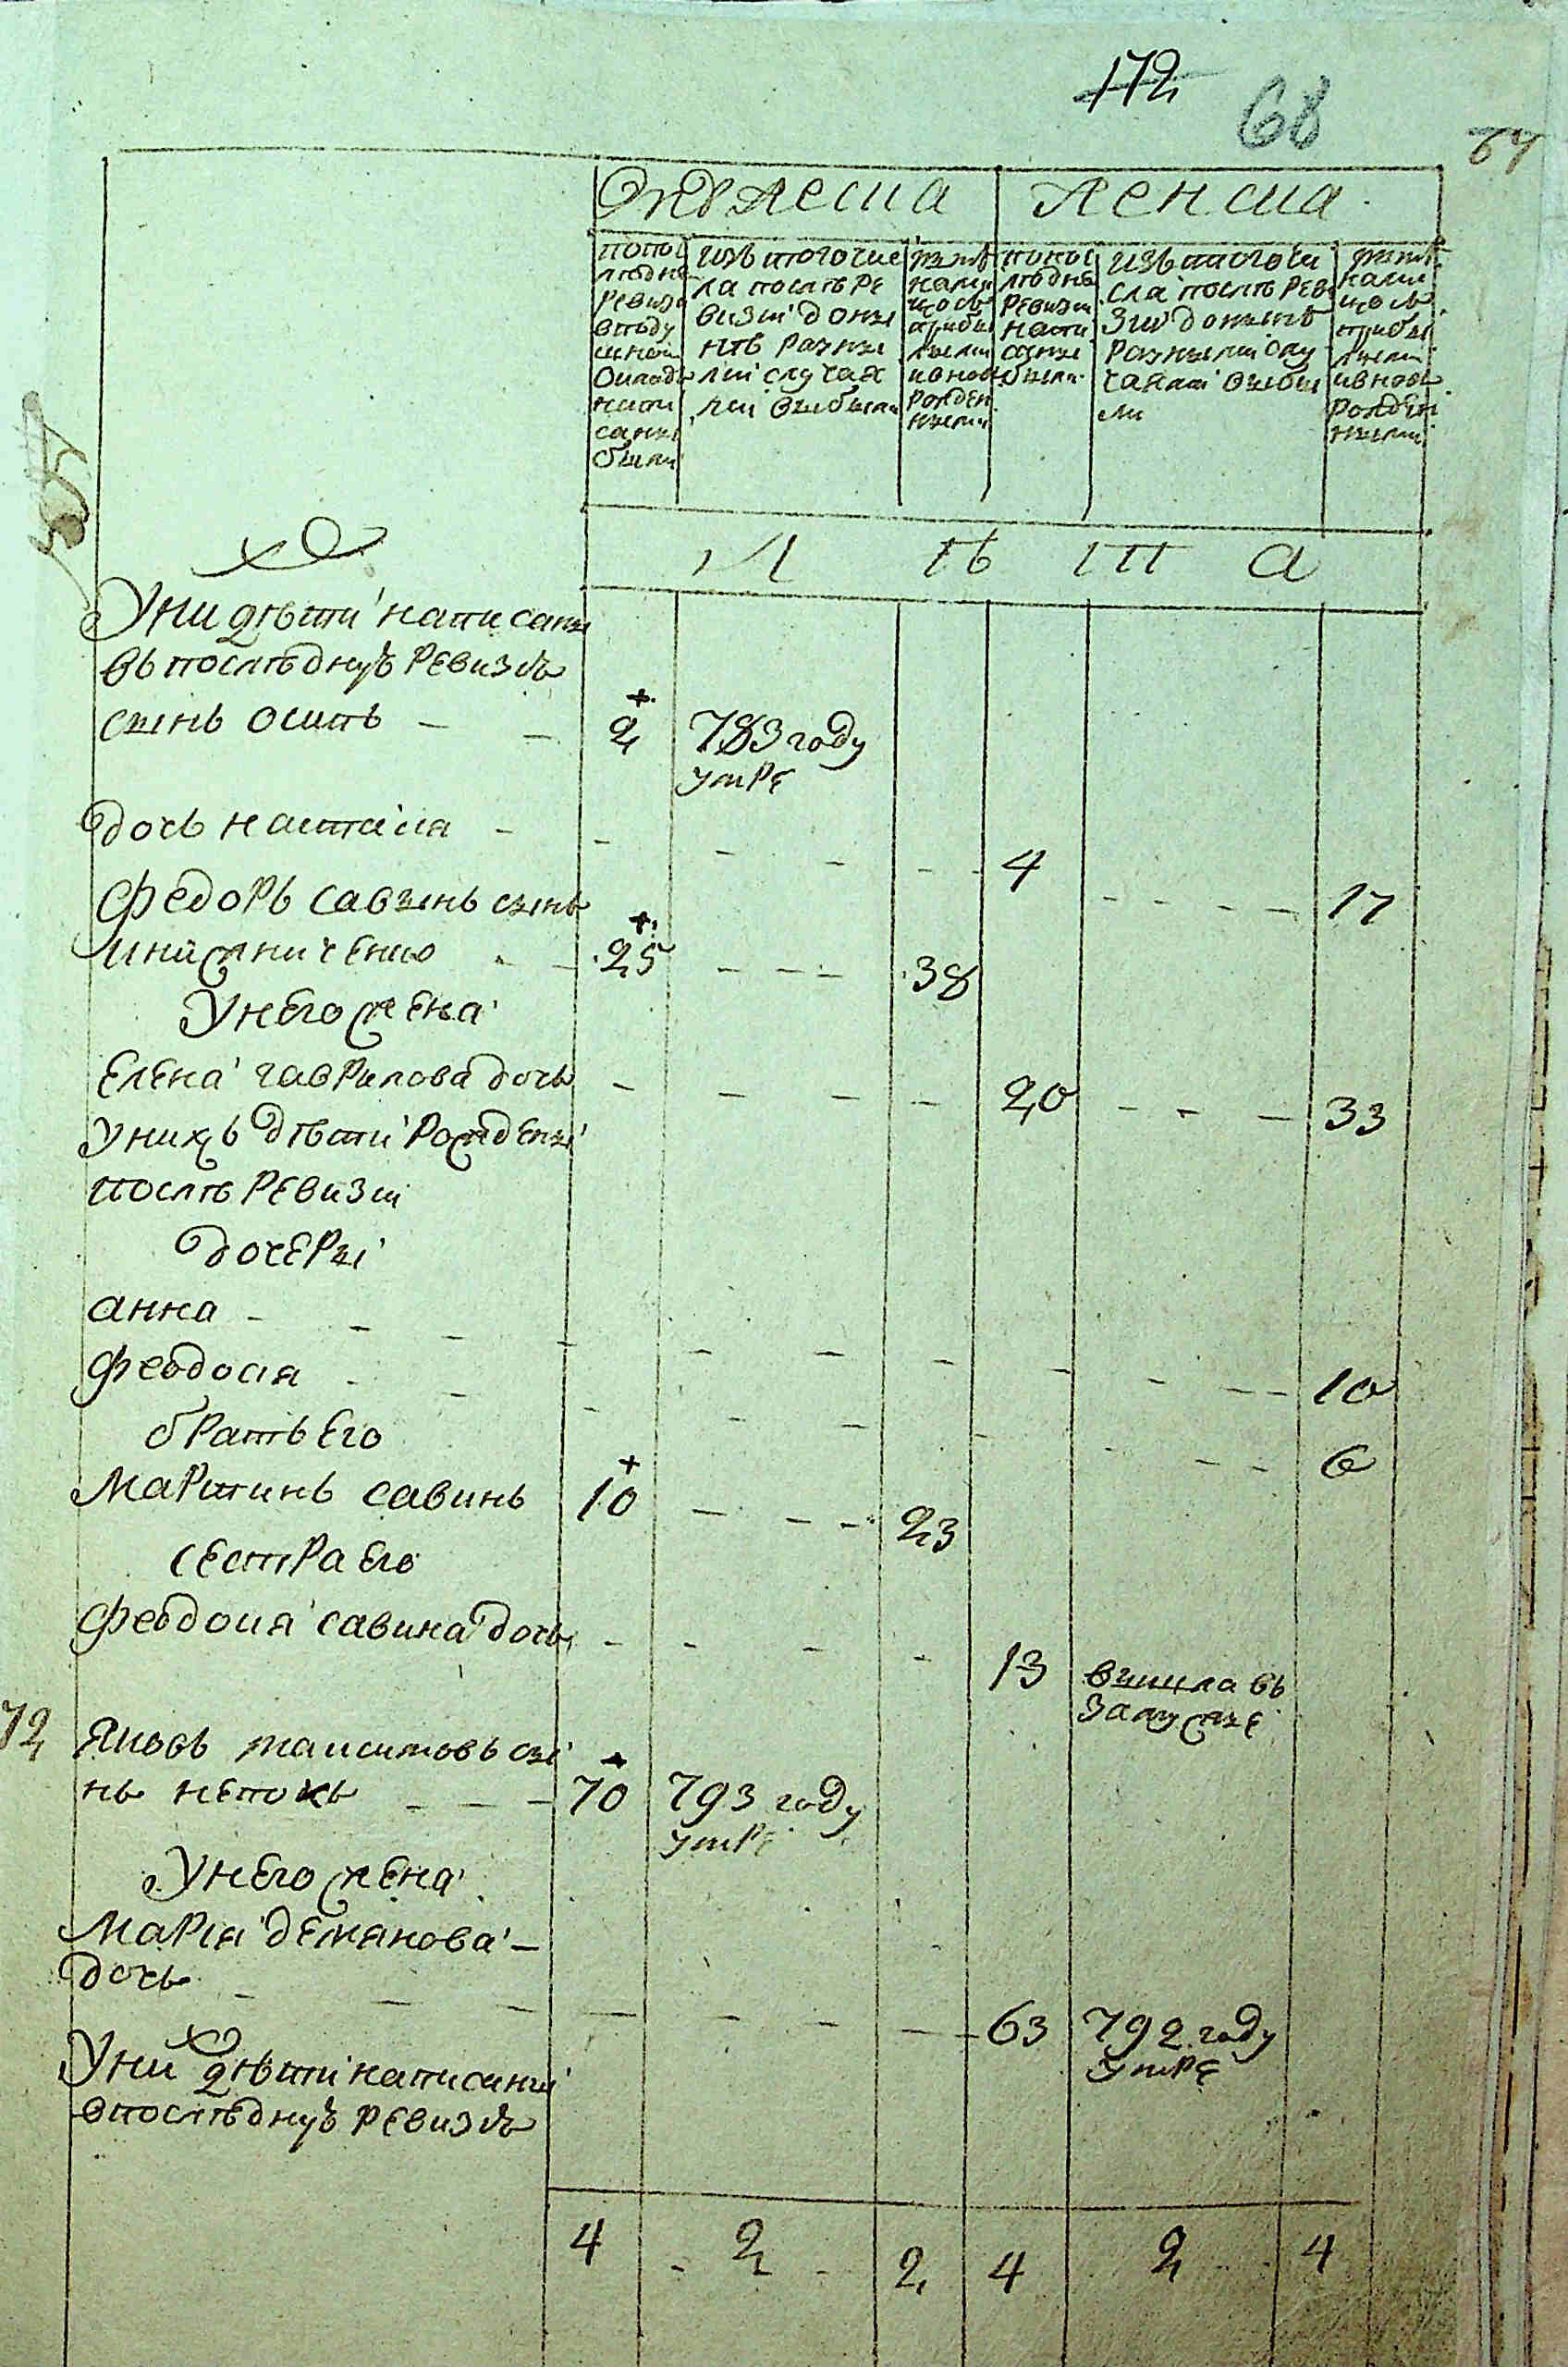 172
68
67
Мужеска
Женска
попос
лѣдне
ревизи
вподу
шной
окладъ
напи
саны
были
изъ тогочис
ла послѣ ре
визіи доны
нѣ разны
ми случая
ми выбыли
нынѣ
нали
цо съ
прибы
лыми
ивнов
рожден
ными
попос
лѣдне
ревизіи
напи
саны
были
изъ тогочи
сла послѣ реви
зіи донынѣ
разными слу
чаями выбы
ли
нынѣ
нали
цо съ
прибы
лыми
ивновь
рожден
ными
Л ѣ т а
У них дѣти написаны
въ послѣднуъ ревизіъ
сынъ осипъ
2
783 году
умре
дочь настасія
4
17
Федоръ савинъ сынъ
25
38
У него жена
Елена гаврилова дочь
20
33
У нихъ дѣти рождены
послѣ ревизіи
дочеры
анна
10
феодосія
6
братъ Его
мартинъ савинъ
10
23
сестра Его
феодосія савина дочь
13
вышла въ
замужье
72
Яковъ максимовъ сы
нъ
70
793 году
умре
У него жена
Марія демянова
дочь
63
792 году
умре
У них дѣти написаны
впослѣднуъ ревизіъ
4 2 2 4 2 4